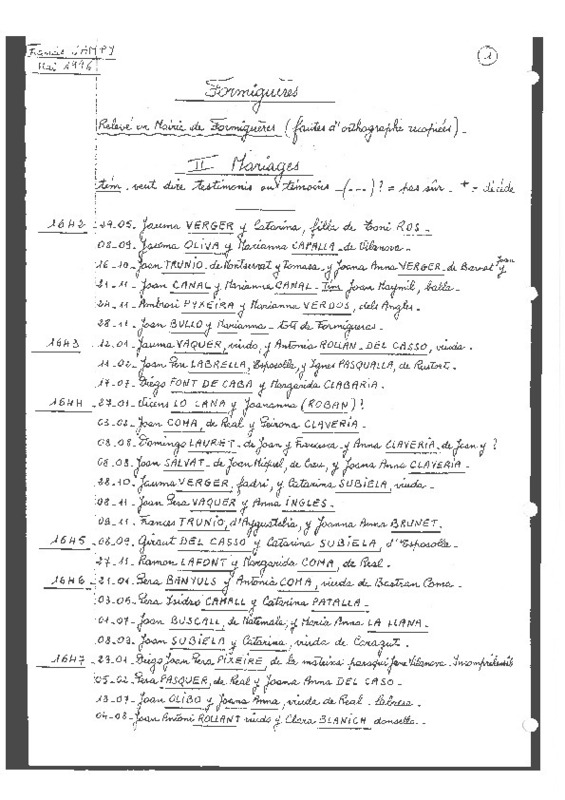 Francis JAMPY
Mai 1996
1
Formiguères
Relevé en Mairie de Formiguères (fautes d'orthographe recopiées) -
II Mariages
tém. veut dire testimonis ou témoins - (...) ? = pas sûr - + = décédé
1642 - 29.05. Jauma VERGER y Catarina, filla de Toni ROS -
08-09. Jacoma OLIVA y Marianna CAPALLA - de Vilanova -
16-10. Joan TRUNIO - de Montserrat y Tomasa, y Joana Anna VERGER - de y Joan
21-11 - Joan CANAL y Marianna CANAL - Tém Joan Maynil, balle -
24-11 - Ambrosi PYXEIRA y Marianna VERDOS, dels Angles -
28-11. Joan BULLO y Marianna - tots de Formigueras -
1643 - 12.01. Jauma VAQUER, viudo, y Antonia ROLLAN - DEL CASSO, viuda -
11-02. Joan Pere LABRELLA, Esposolla, y Ygnes PASQUALLA, de Rautort -
17-07. Diego FONT DE CABA y Margarida CLABARIA -
1644 - 27-01. Vicens LO CANA y Joananna (ROBAN) ?
03-02 - Joan COMA, de Real y Peirona CLAVERIA -
08-08 - Domingo LAURET - de Joan y Francesca y Anna CLAVERIA - de Joan y ?
08.08. Joan SALVAT - de Joan Miquel, de Creu, y Joana Anna CLAVERIA -
28-10. Jauma VERGER, fadri, y Catarina SUBIELA, viuda -
08-11 - Joan Pera VAQUER y Anna INGLES -
09-11. Frances TRUNIO, d'Ayguatebia, y Joanna Anna BRUNET -
1645 - 06-09. Giraut DEL CASSO y Catarina SUBIELA, d'Esposolla -
27-11. Ramon LAFONT y Margarida COMA, de Real -
1646 - 21-01. Pera BANYULS y Antonia COMA, viuda de Bastran Coma -
03-05. Pera Isidro CAMALL y Catarina PATALLA -
01-07. Joan BUSCALL, de Matemala, y Maria Anna LA LLANA -
08-09. Joan SUBIELA y Catarina, viuda de Corazut -
1647 - 23-01. Diego Joan Pera PIXEIRE de la mateixa Vilanova - Incompréhensible
05-02. Pera PASQUER, de Real y Joana Anna DEL CASO -
13-07. Joan OLIBO y Joana Anna, viuda de Real -
04-08. Joan Antoni ROLLANT viudo y Clara BLANICH donsella -